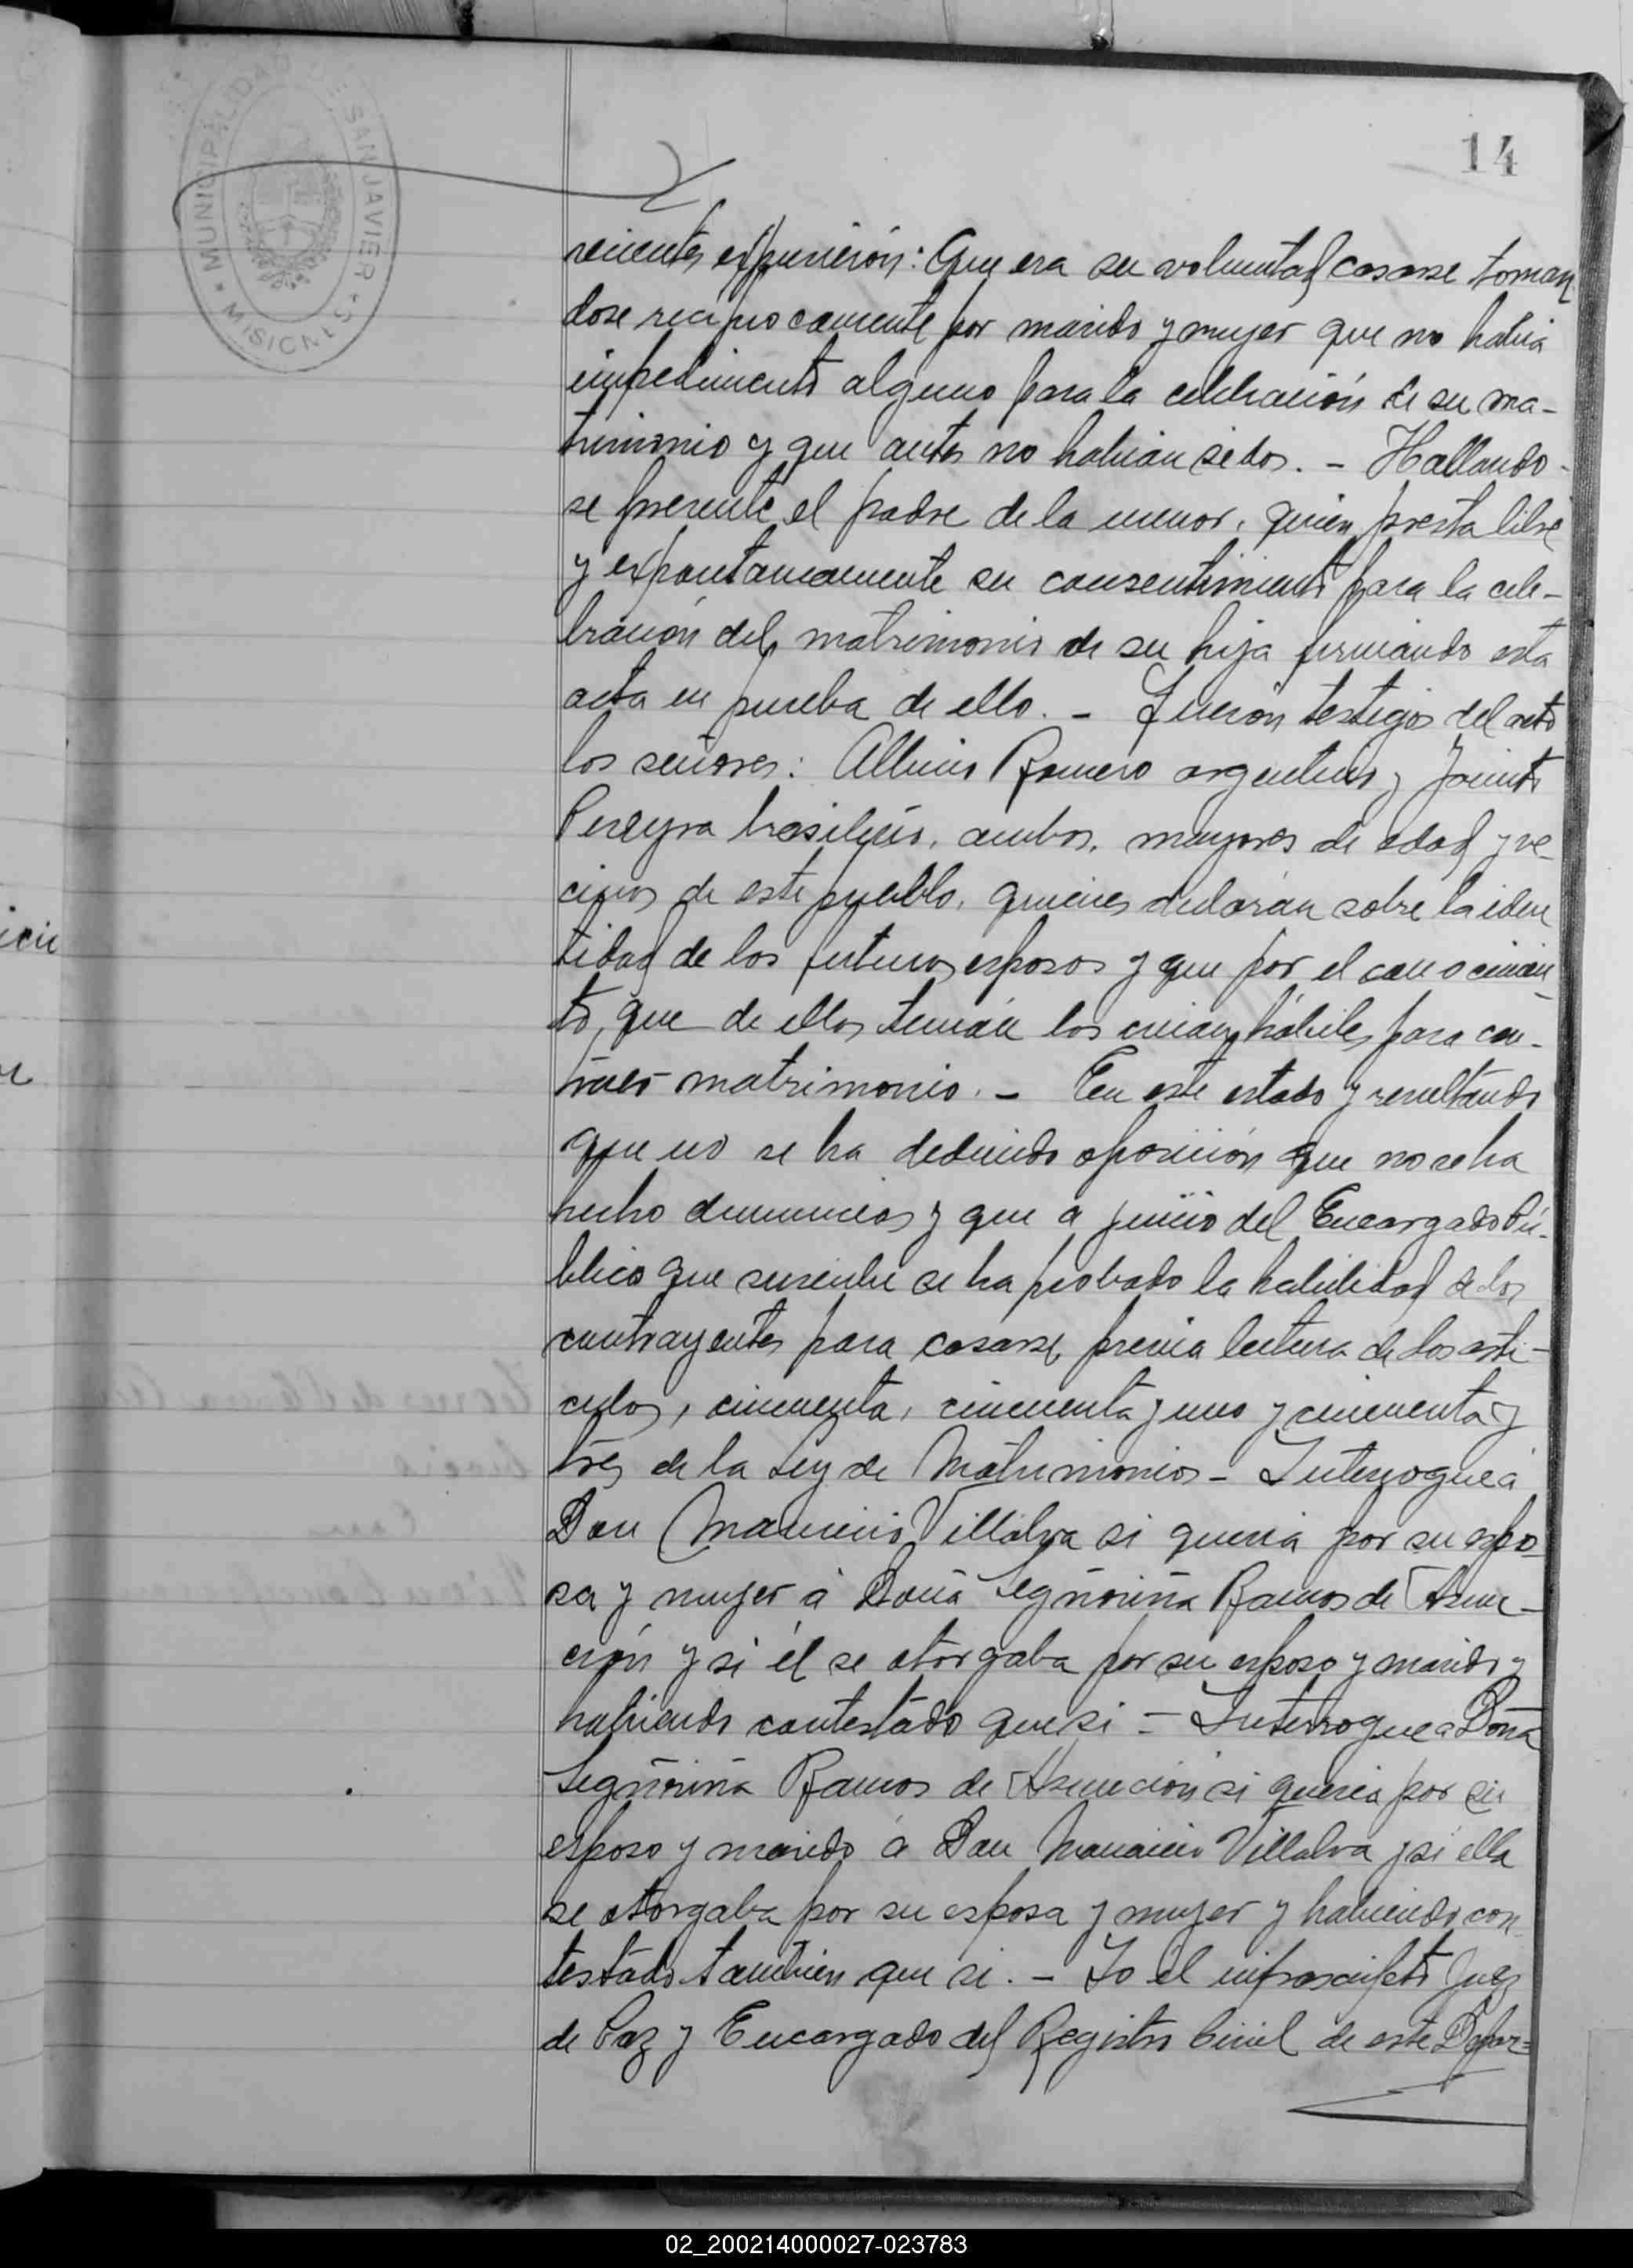 14
MUNICIPALIDAD SAN JAVIER
MISIONES
recientes expusieron: Que era su voluntad casarse toman
dose recíprocamente por marido y mujer que no había
impedimento alguno para la celebración de su ma-
trimonio y que antes no habían sidos. - Hallando-
se presente el padre de la menor, quien presta libre
y espontaneamente su consentimiento para la cele-
bración del matrimonio de su hija firmando esta
acta en prueba de ello. - Fueron testigos del acto
los señores: Albino Romero argentino y Jacinto
Pereyra brasilero, ambos, mayores de edad y ve-
cinos de este pueblo, quienes declaran sobre la iden
tidad de los futuros esposos y que por el conocimien
to, que de ellos tenían los creian hábiles para con-
traer matrimonio. - En este estado y resultando
que no se ha deducido oposición que no se ha
hecho denuncias y que a juicio del Encargado Pú-
blico que suscribe se ha probado la habilidad de los
contrayentes para casarse, previa lectura de los artí-
culos, cincuenta, cincuenta y uno y cincuenta y
tres de la Ley de Matrimonios - Interrogue á
Don Mauricio Villalva si queria por su espo-
sa y mujer á Doña Segñoriña Ramos de Asun-
ción y si él se otorgaba por su esposo y marido y
habiendo contestado que si - Interrogue a Doña
Segñoriña Ramos de Asunción si queria por su
esposo y marido á Don Mauricio Villalva y si ella
se otorgaba por su esposa y mujer y habiendo con
testado tambien que si. - Yo el infrascripto Juez
de Paz y Encargado del Registro Civil de este Depar=
02_200214000027-023783